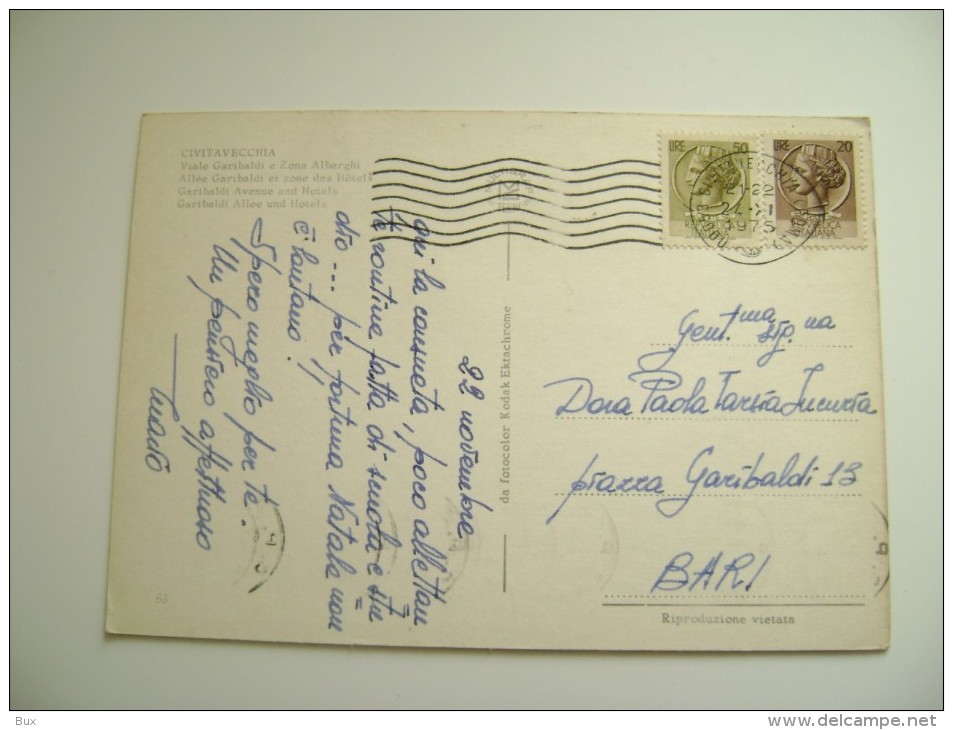 CIVITAVECCHIA
Viale Garibaldi e Zona Alberghi
Allée Garibaldi et zone des Hôtels
Garibaldi Avenue and Hotels
Garibaldi Allée und Hotels
22 novembre
Qui la consueta, poco allettan
te routine fatta di scuola e stu
dio... per fortuna Natale non
è lontano!
Spero meglio per te.
Un pensiero affettuoso
da fotocolor Kodak Ektachrome
LIRE 50
LIRE 20
CIVITAVECCHIA
21-22
1975
(ROMA)
Gent.ma sig.na
Dora Paola Tarsia
piazza Garibaldi 13
BARI
Riproduzione vietata
63
Bux
www.delcampe.net